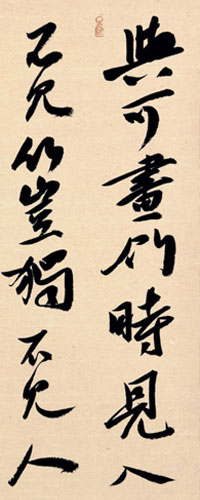 與可畫竹時見人
不見竹豈獨不見人